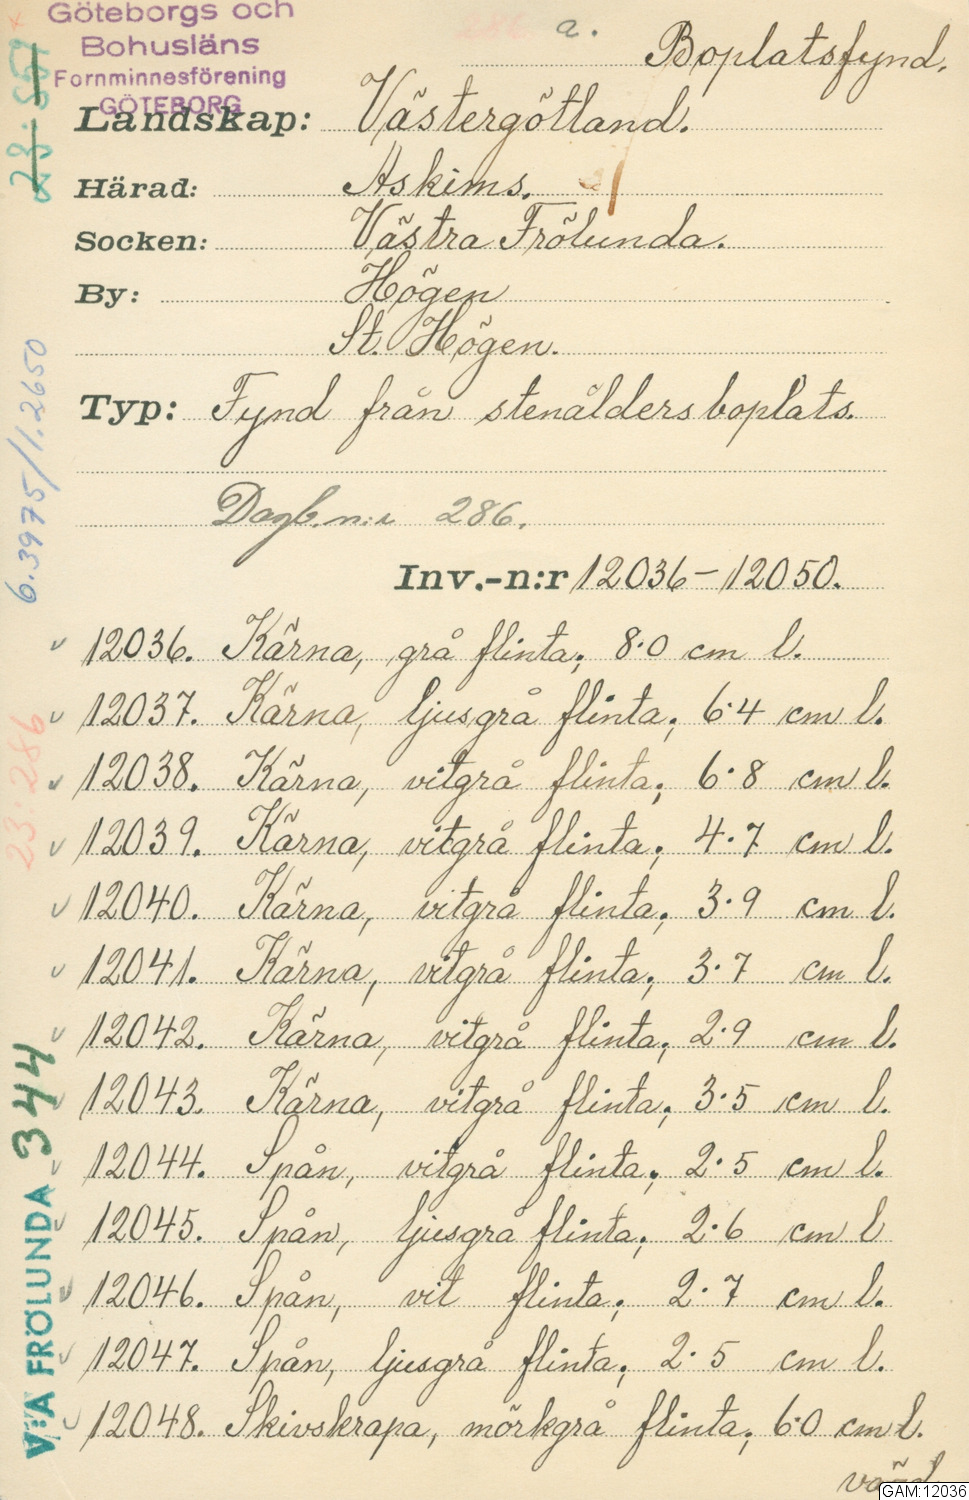 Göteborgs och
Bohusläns
Fornminnesförening
GÖTEBORG
286 a.
Boplatsfynd.
Landskap: Västergötland.
Härad: Askims.
Socken: Västra Frölunda.
By: Högen
St. Högen.
Typ: Fynd från stenåldersboplats.
Dagb.n:r 286.
Inv.-n:r 12036-12050.
12036. Kärna, grå flinta; 8.0 cm l.
12037. Kärna, ljusgrå flinta; 6.4 cm l.
12038. Kärna, vitgrå flinta; 6.8 cm l.
12039. Kärna, vitgrå flinta; 4.7 cm l.
12040. Kärna, vitgrå flinta; 3.9 cm l.
12041. Kärna, vitgrå flinta; 3.7 cm l.
12042. Kärna, vitgrå flinta; 2.9 cm l.
12043. Kärna, vitgrå flinta; 3.5 cm l.
12044. Spån, vitgrå flinta; 2.5 cm l.
12045. Spån, ljusgrå flinta; 2.6 cm l
12046. Spån, vit flinta; 2.7 cm l.
12047. Spån, ljusgrå flinta; 2.5 cm l.
12048. Skivskrapa, mörkgrå flinta; 6.0 cm l.
vänd
6.3975/1.2650
23:286
V:A FRÖLUNDA 344
GAM:12036